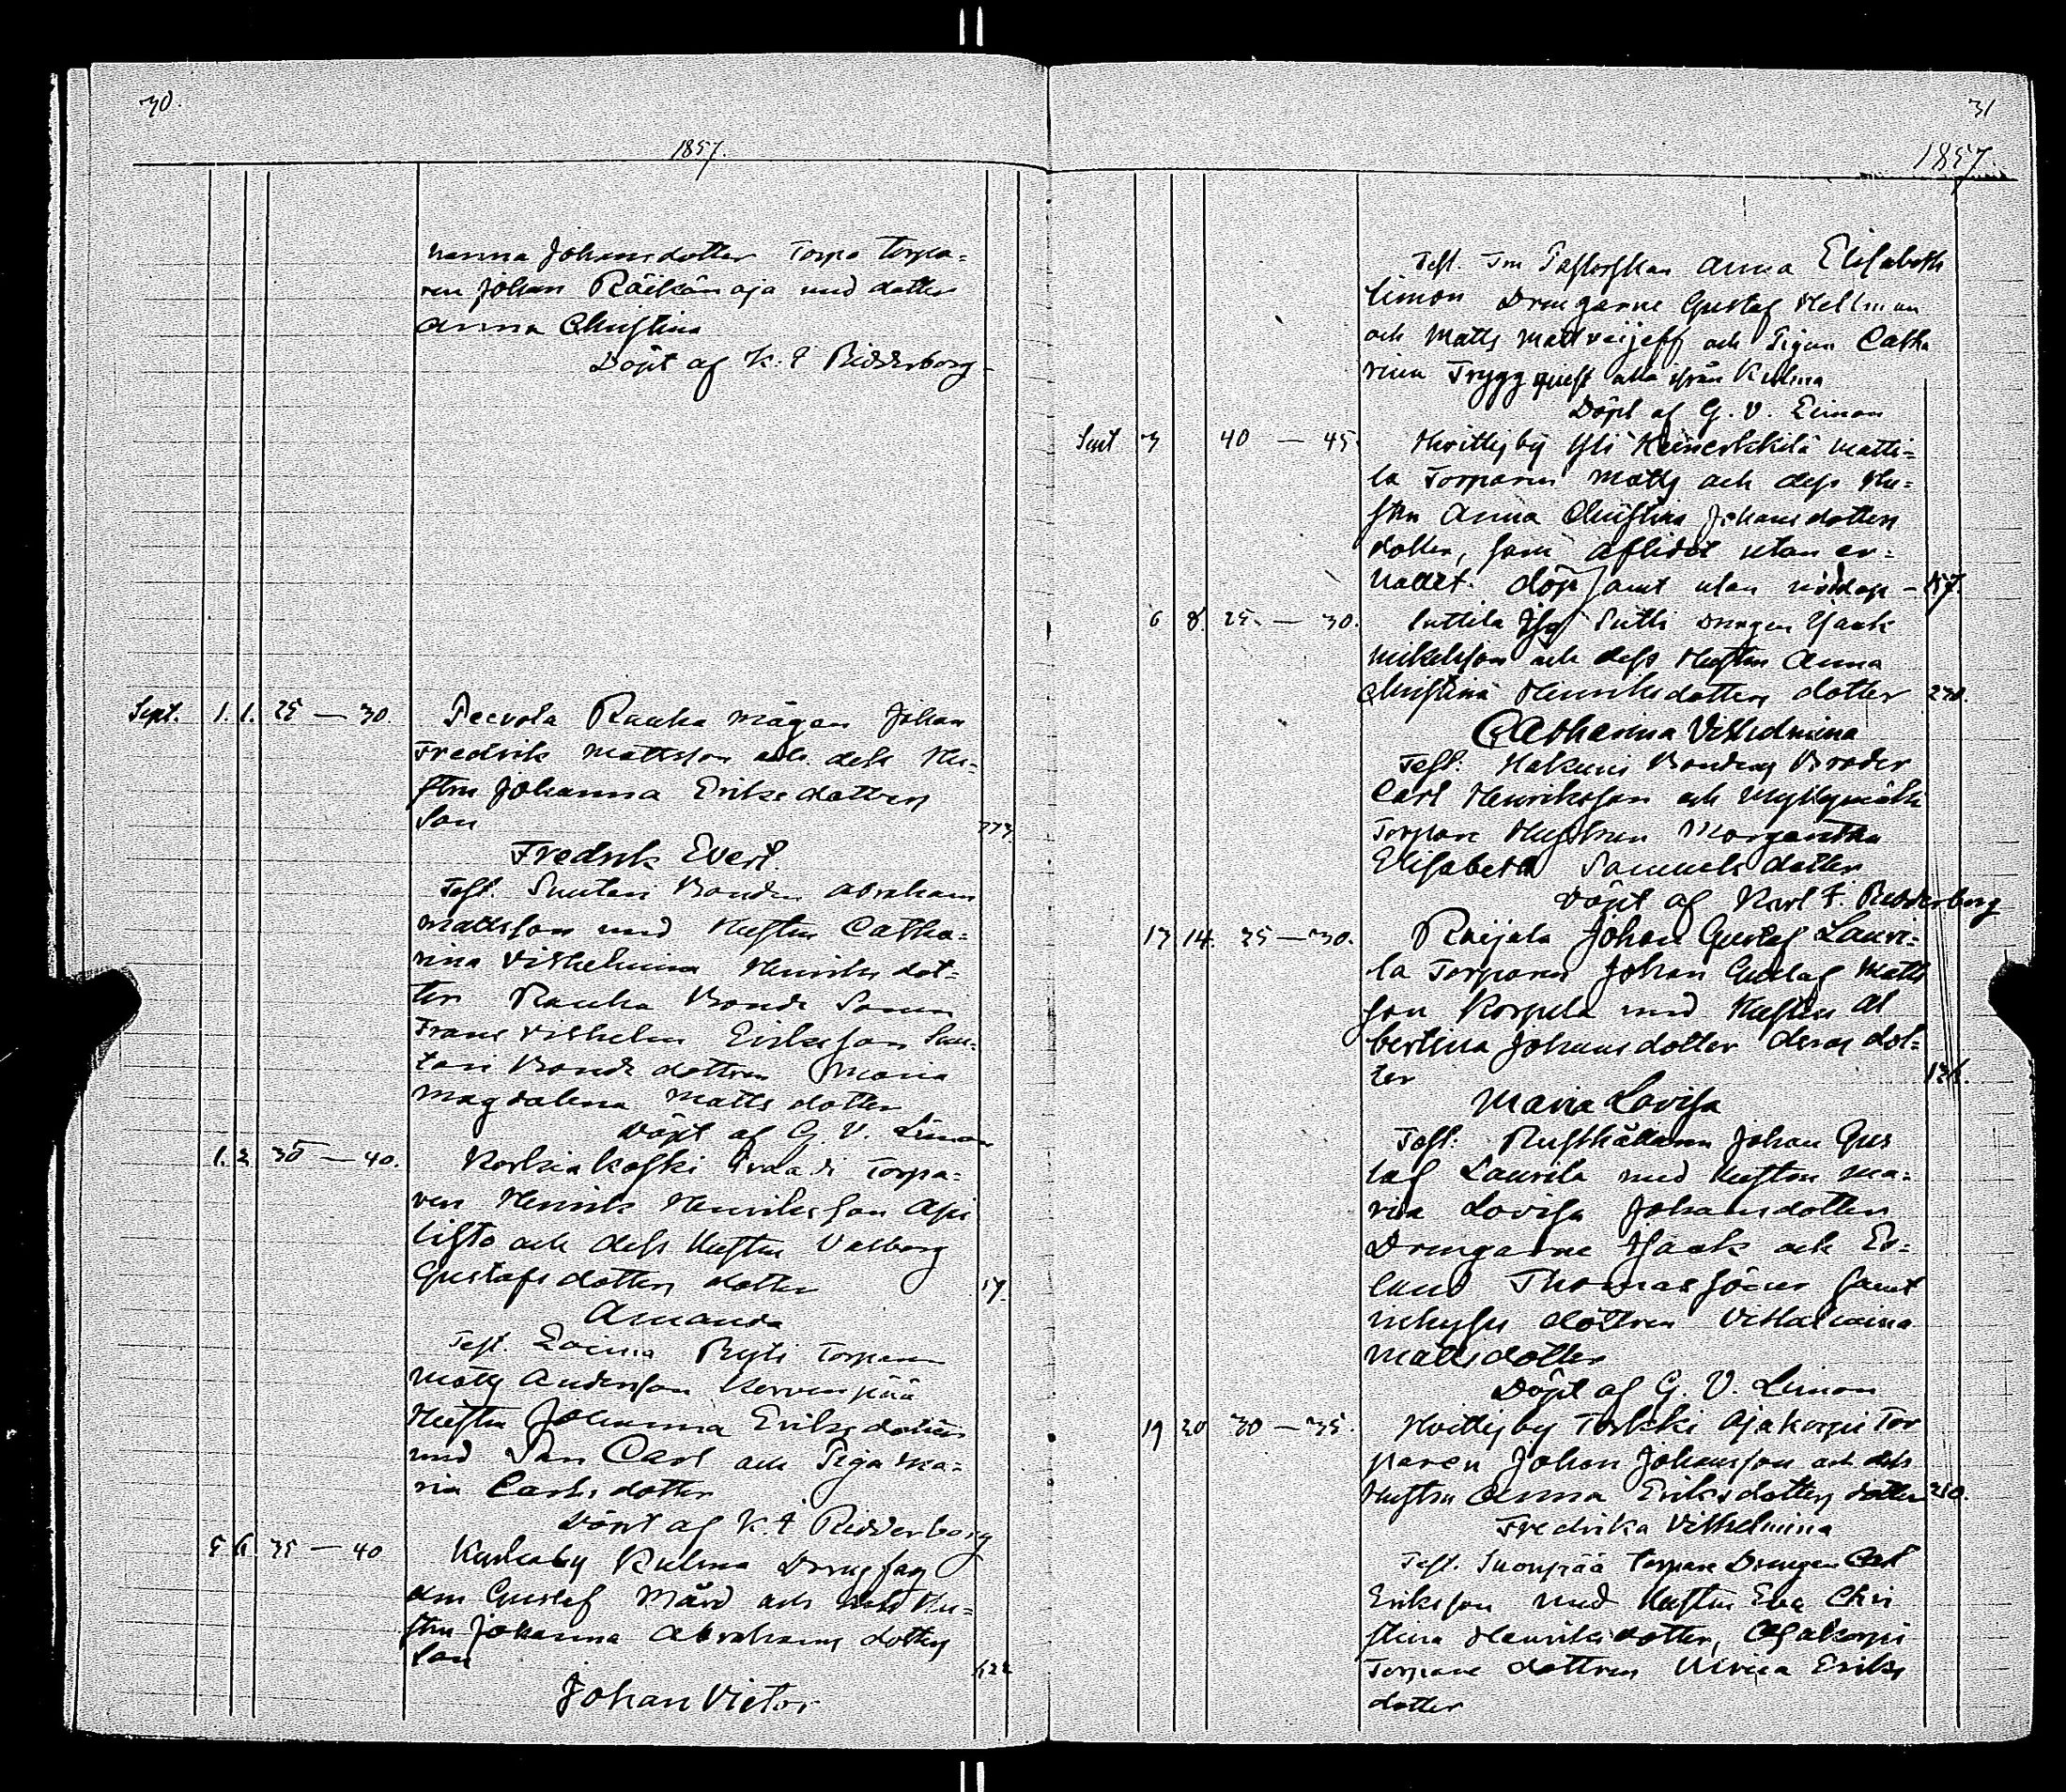 30.
1857.
hanna Johansdotter Torpa Torpa=
ren Johan Räikänoja med dotter
Anna Christina
Döpt af K. F Ridderborg
Sept. 1. 1. 25 — 30. Peevola Rauha mågen Johan
Fredrik Mattsson och dess Hu=
stru Johanna Eriksdotters
Son 373.
Fredrik Evert.
Test. Suutari Bonden Abraham
Mattsson med Hustru Catha=
rina Vilhelmina Henriks dot=
ter Rauha Bonde Sonen
Frans Vilhelm Eriksson Suu=
tari Bonde dottren Maria
Magdalena Matts dotter
Döpt af G. V. Limon
1. 2. 35 — 40. Korkiakoski Torpa=
ren Henrik Henriksson
listo och dess Hustru Valborg
Gustafs dotters dotter 17.
Amanda
Test. Ryti Torparen
Matts Andersson Kervenpää
Hustru Johanna Eriks dotter
med Son Carl och Piga Ma=
ria Carls dotter
Döpt af K. F Ridderborg
5 6 35 — 40 Karhiaby Kulma
Gustaf Mård och dess Hu=
stru Johanna Abrahams dotters
Son 122
Johan Victor
31
1857.
Test. Fru Pastorskan Anna Elisabeth
Limon Drengarne Gustaf Hellman
och Matts Mattveijeff och Pigan Catha
rina Tryggquist alla ifrån Kulma
Döpt af G. V. Limon
Sept 3 40 — 45 Hvittisby Yli Matti=
la Torparen Matts och dess Hu=
stru Anna Christina Johansdotters
dotter, som aflidit utan er=
hållet döp samt utan nöddop — 157.
6 8. 25 — 30. Suttila Iso Sutti Drengen Isaak
Mikelsson och dess Hustru Anna
Christina Henriksdotters dotter 270.
Catharina Vilhelmina
Test: Hakuni Bondens Broder
Carl Henriksson och Myllymäki
Torpare Hustrun Margaretha
Elisabeth Samuelsdotter
Döpt af Karl F. Ridderborg
13 14. 25 — 30. Raijala Johan Gustaf Lauri=
la Torparen Johan Gustaf Matts
son Korpela med Hustru Al
bertina Johansdotter deras dot=
ter 136.
Maria Lovisa
Test: Rusthållaren Johan Gus
taf Laurila med Hustru Ma=
ria Lovisa Johansdotter
Drengarne Isaak och Er=
land Thomassöner samt
inhyses dottren Vilhelmina
Mattsdotter
Döpt af G. V. Limon
19 20 30 — 35. Hvittisby Torkki Ajakorpi Tor
paren Johan Johansson och dess
Hustru Anna Eriksdotters dotter 210.
Fredrika Vilhelmina
Test. Suonpää Torpare Drengen Carl
Eriksson med Hustru Eva Chri
stina Henriksdotter, Ajakorpi
Torpare dottren Ulrica Eriks
dotter